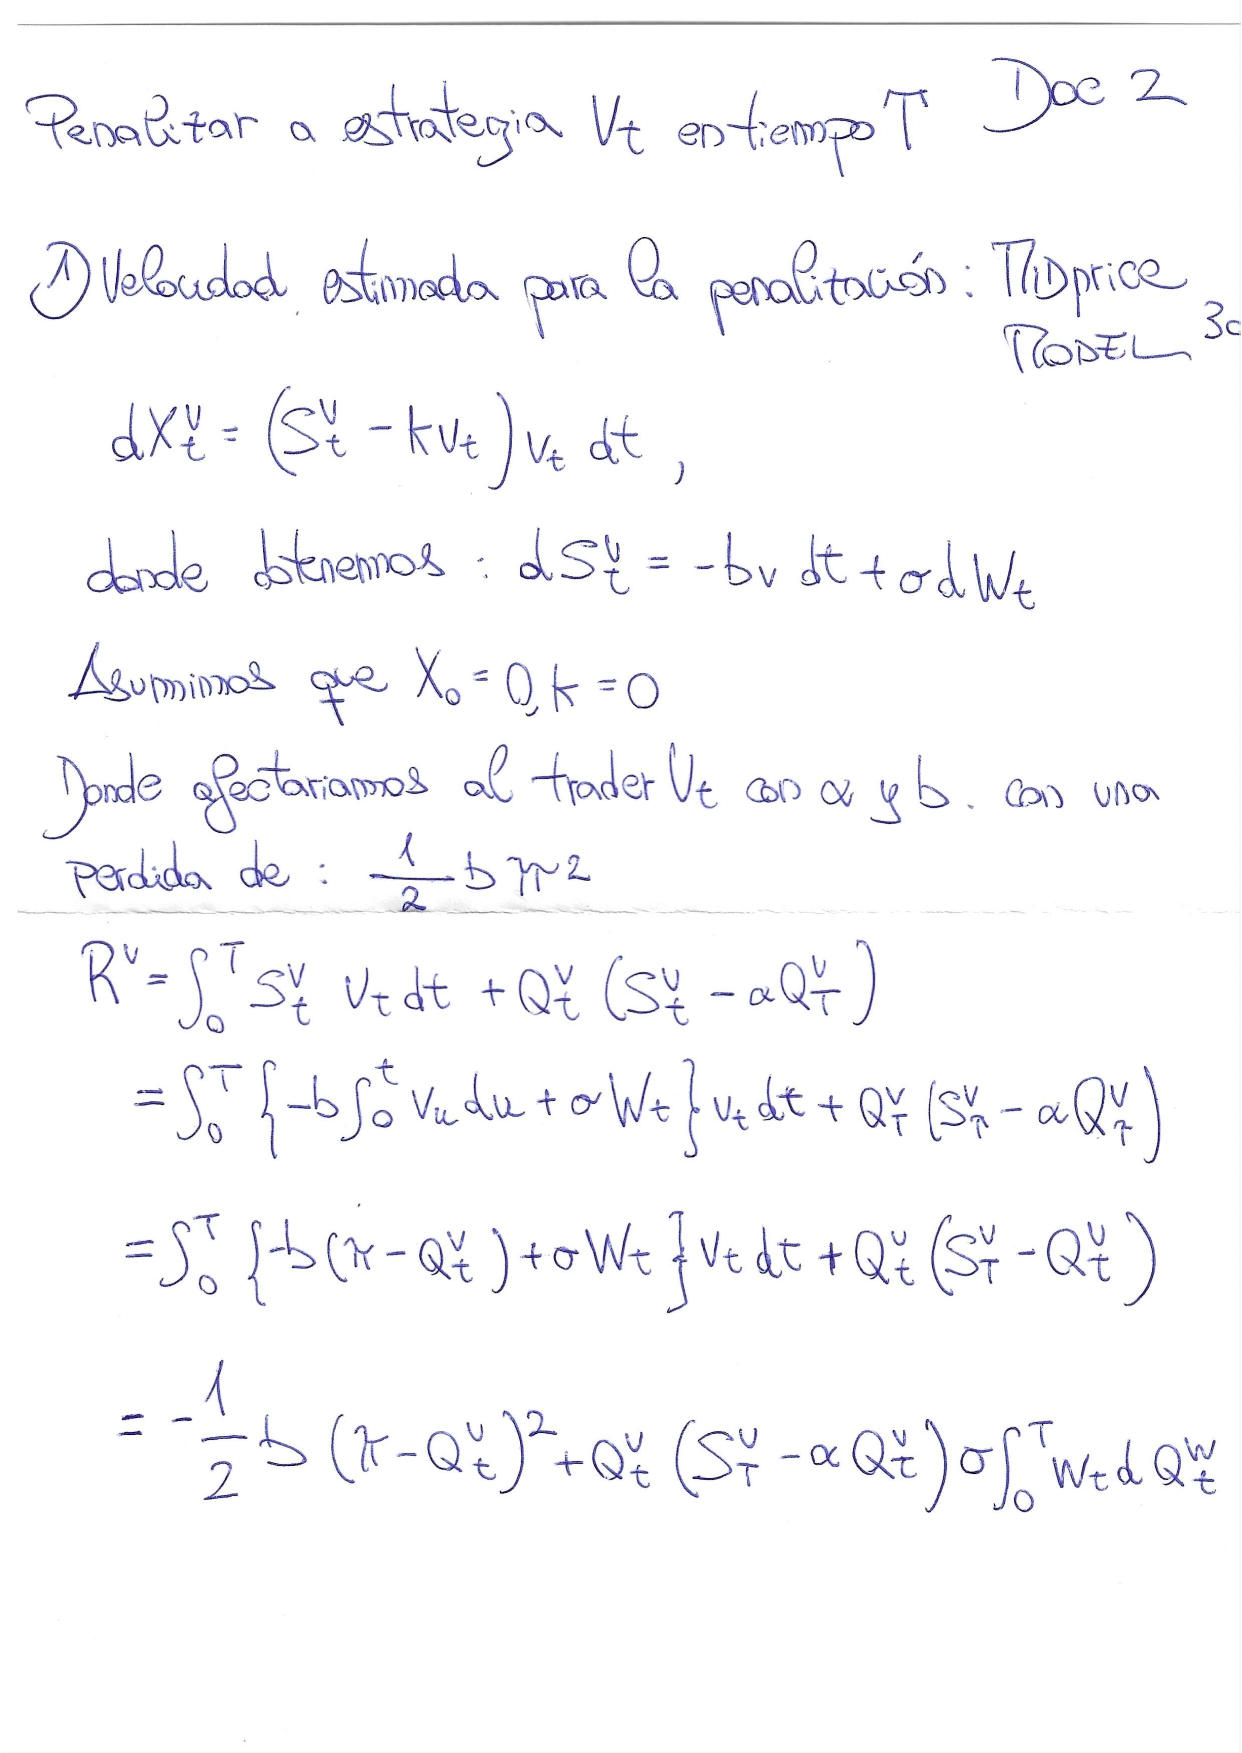 Penalizar a estrategia Vt en tiempo T Doc 2
1) Velocidad estimada para la penalización: MIDprice
MODEL 3c
dX_t^v = (S_t^v - kv_t) v_t dt,
donde obtenemos: dS_t^v = -bv dt + σdW_t
Asumimos que X_0 = 0, k = 0
Donde afectariamos al trader V_t con α y b. con una
perdida de: 1/2 b π^2
R^v = ∫_0^T S_t^v V_t dt + Q_t^v (S_t^v - αQ_T^v)
= ∫_0^T {-b∫_0^t v_u du + σW_t} v_t dt + Q_T^v (S_T^v - αQ_T^v)
= ∫_0^T {-b(π - Q_t^v) + σW_t} v_t dt + Q_t^v (S_T^v - Q_t^v)
= -1/2 b (π - Q_t^v)^2 + Q_t^v (S_T^v - αQ_t^v) σ∫_0^T W_t dQ_t^w